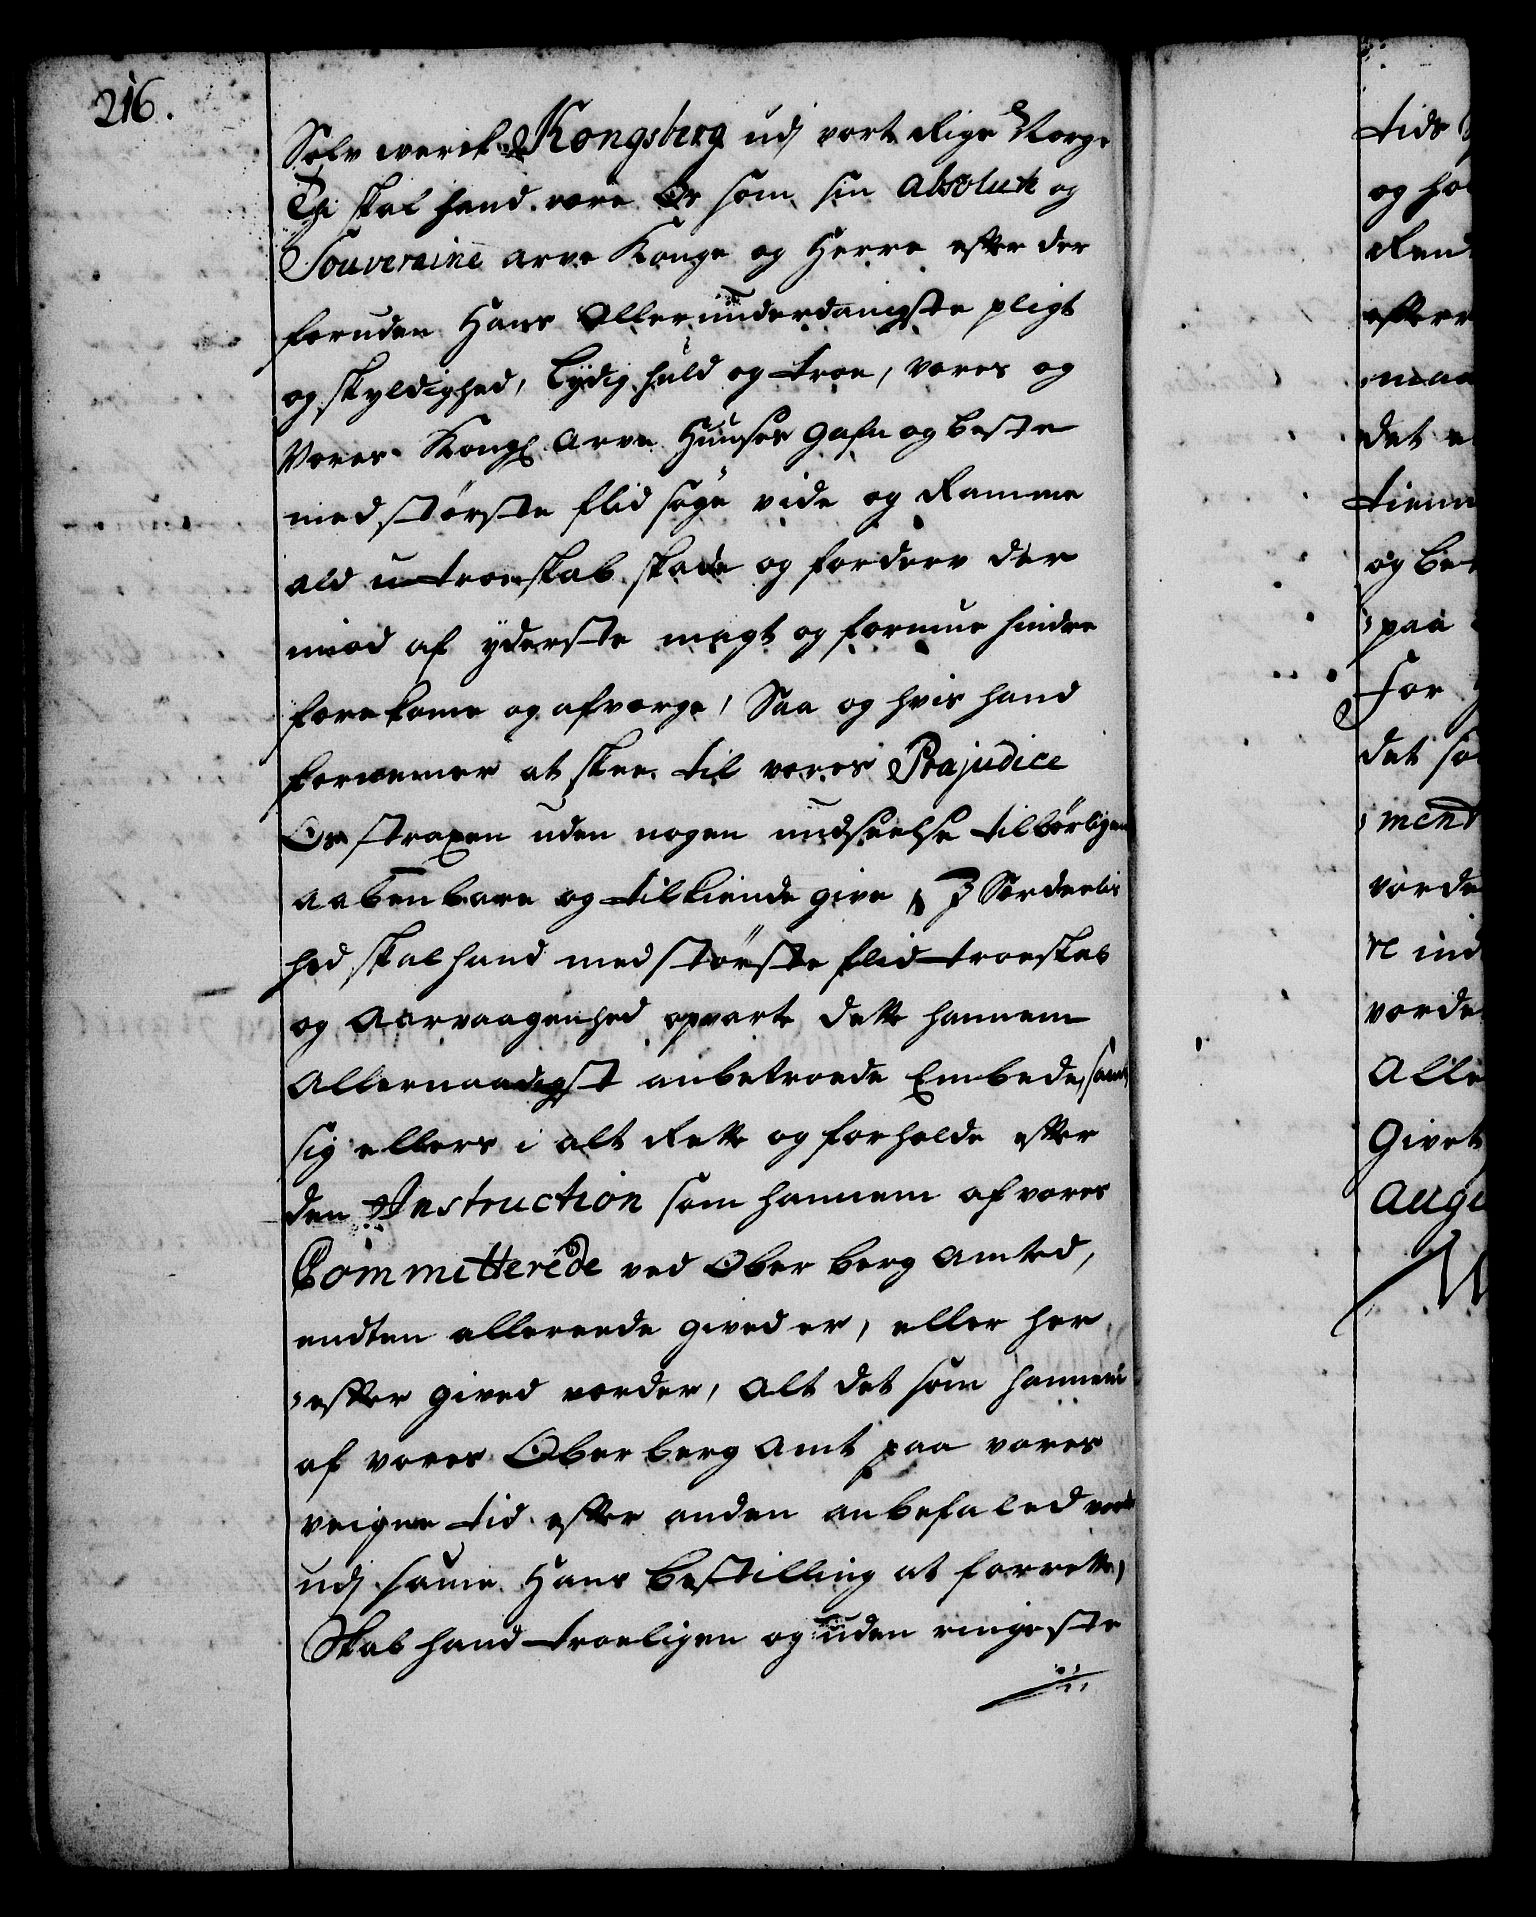 216.
Sølv werck Kongsberg udj vort Rige Norge
Thi skal hand være Os som sin Absolute og
Souveraine arve Konge og Herre efter der
foruden Hans Allerunderdanigste pligt
og skyldighed, lydig huld og troe, vores og
Vores Kongl. Arve Huuses gafn og beste
med største flid søge vide og Ramme
ald utroeskab skade og forderv der
imod af yderste magt og formue hindre
forekome og afverge, Saa og hvis hand
fornemer at skee til vores Præjudice
Os straxen uden nogen undseelse tilbørligen
aabenbare og tilkiende give J Særdeelis
hed skal hand med største flid troeskab
og Aarvaagenhed opvarte dette hannem
Allernaadigst anbetroede Embede, samt
sig ellers i alt Rette og forholde efter
den Instruction som hannem af vores
Committerede ved Ober berg Amted,
endten allereede gived er, eller her
efter gived vorder, Alt det som hannem
af vores Ober berg Amt paa vores
veigne tid efter anden anbefaled vorder
udj same Hans bestilling at forrette,
Skal hand troeligen og uden ringeste
tids
og hol
Rend
efterr
maa
det e
tienn
og be
paa
For
det sa
ment
vorde
re ind
vorde
Alle
Givet
Augu